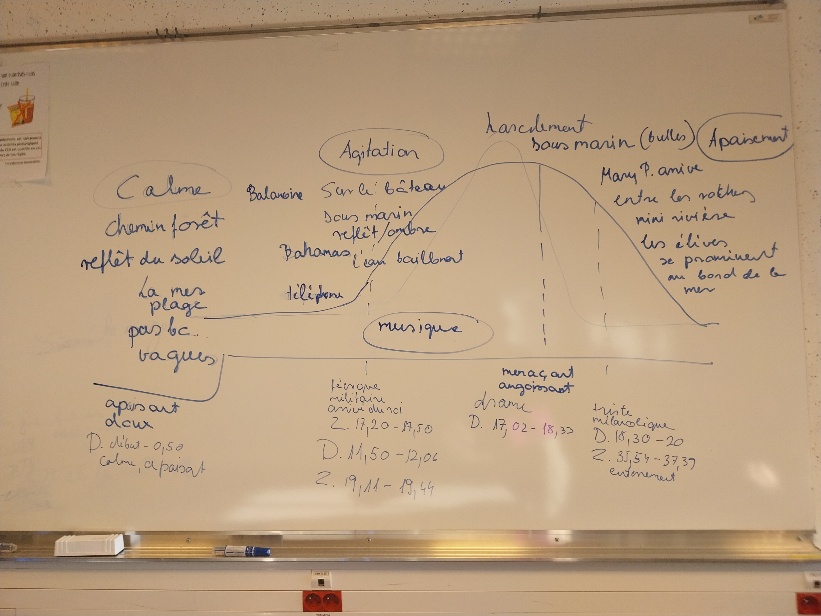 Calme
chemin forêt
reflêt du soleil
La mer
plage
pas bc..
vagues
apaisant
doux
D. début - 0,50
calme, apaisat
Agitation
Balancoire
Sur le bâteau
Sous marin
reflêt/ombre
Bahamas
l'eau
téléphone
musique
militaire
Z. 17,20 - 17,50
D. 11,50 - 12,06
Z. 19,11 - 19,44
harcèlement
Sous marin (bulles)
menaçant
angoissant
drame
D. 17,02 - 18,30
Apaisement
Mary P. arrive
entre les rochers
mini rivière
les élèves
se prominent
au bord de la
mer
triste
mélancolique
D. 18,30 - 20
Z. 35,54 - 37,39
enterrement